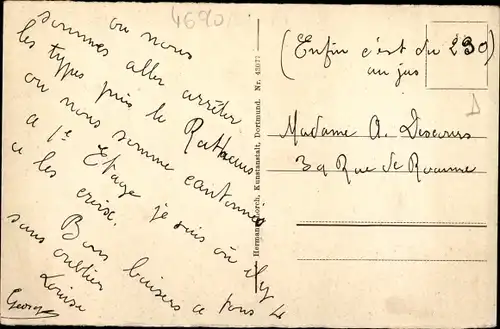 4690
ou nous
sommes aller arrêter
les types puis le Rathaus
ou nous somme cantonnés
a 1e Etage je suis où il y
a les croix.
Bons baisers a tous
sans oublier
Louise
Georges
Hermann Lorch, Kunstanstalt, Dortmund. Nr. 4307
(Enfin c'est du 230)
au jus
Madame A. Descours
39 Rue de Roanne